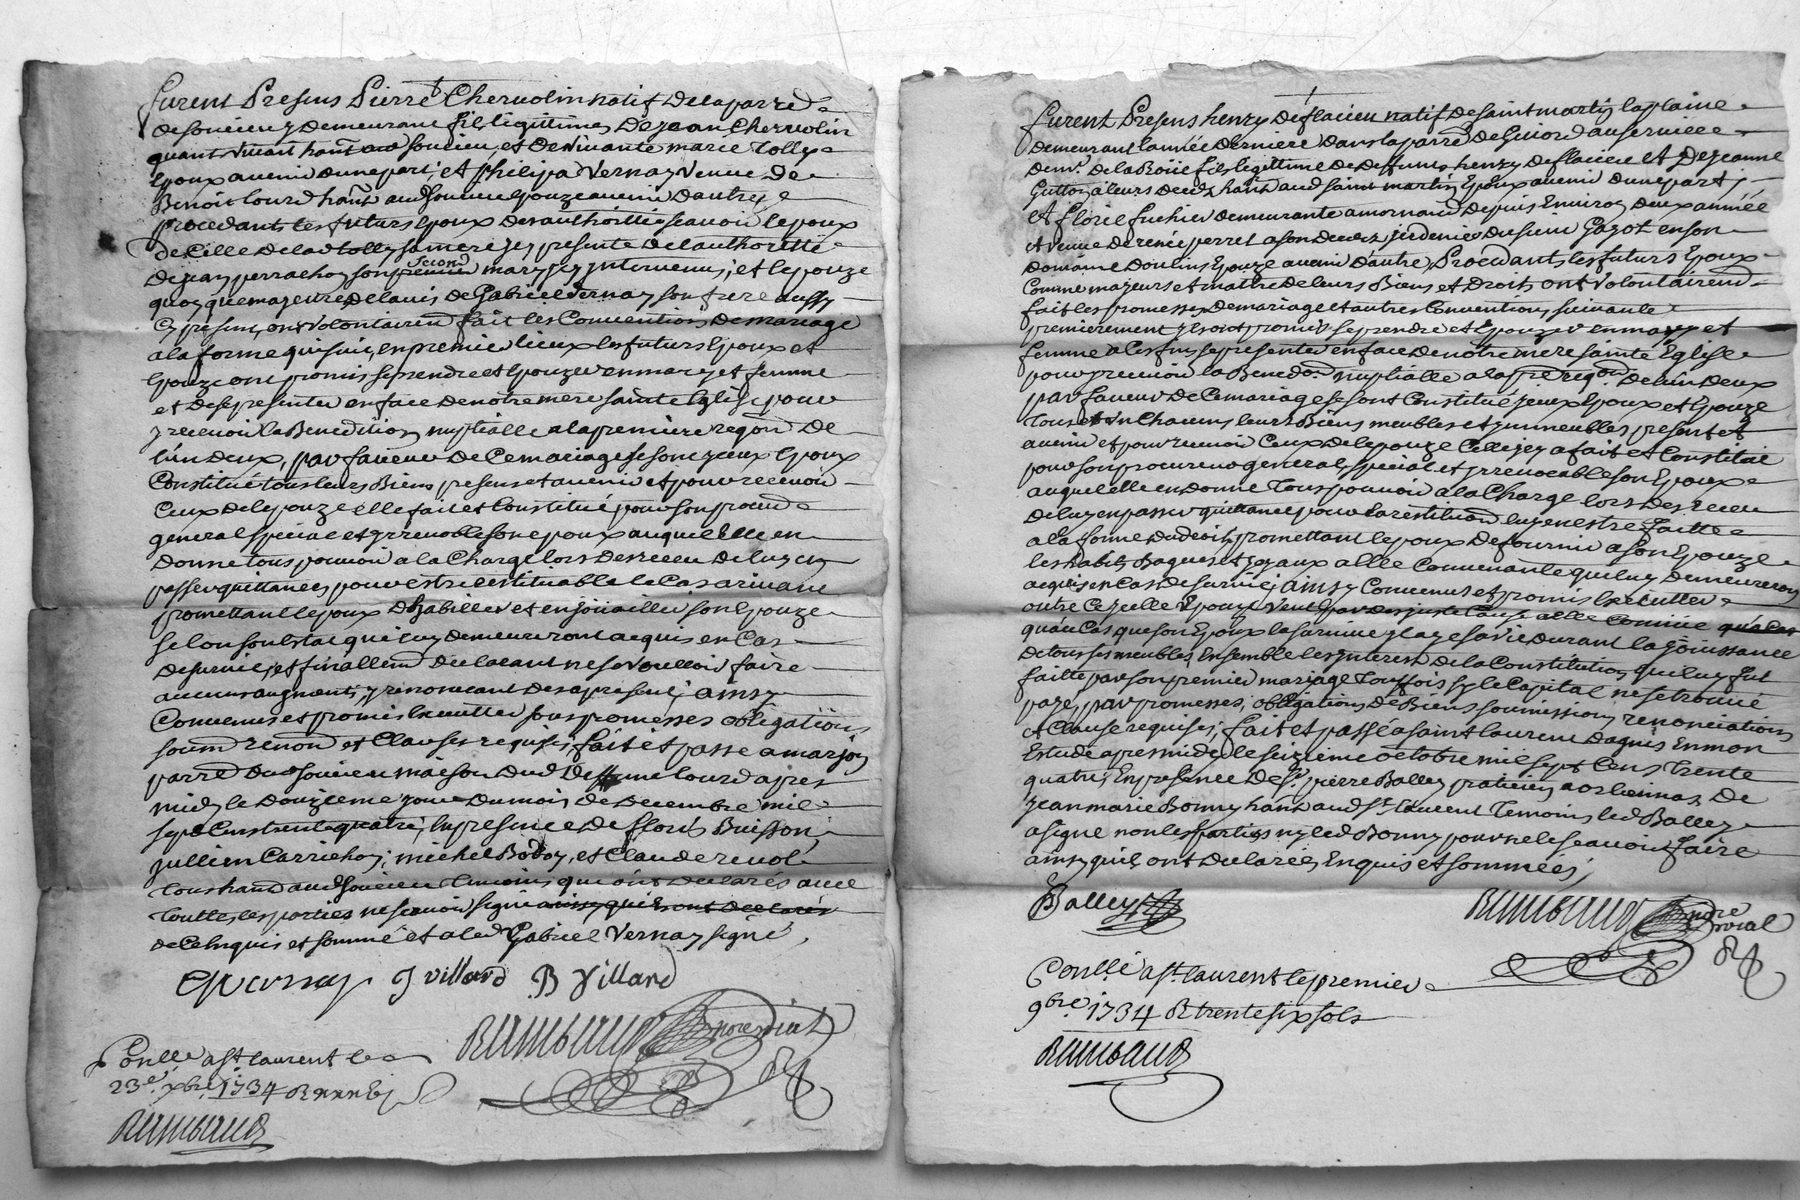 furent Presens Pierre Chervolin natif de la parr.e
de soucieu y demeurant fils legittime de Jean Chervolin
quand vivait habit.t aud soucieu et de vivante marie tolly
Epoux avenir d'une part, et Philipa Vernay Veuve de
Benoit lourd habit.t aud soucieu Epouze avenir d'autre,
procedants les futurs Epoux de authorittés scavoir lepoux
de Celle de lad tolly sa mere icy presente de lauthoritté
de jean perrachon son second premier mary icy Intervenus; et lepouze
quoyque mageure de lavis de Gabriel Vernay son frere aussy
Cy present, ont volontairem.t fait les Conventions de mariage
a la forme qui suit, en premier lieux les futurs Epoux et
Epouze ont promis se prendre et Epouzer en mary et femme
et de se presenter en face de notre mere sainte Eglise pour
y recevoir la Benedition nuptialle a la premiere reqon De
l'un deux, par faveur de Ce mariage se sont yceux Epoux
Constitué tous leurs Biens presens et avenir et pour recevoir
Ceux de lepouze elle fait et Constitué pour son procur.
general special et irrevocable son epoux auquel Elle en
donne tous pouvoir a la Charge lors des receu de luy en
passer quittances pour estre restituable le Cas arrivant
promettant lepoux d'habiller et enjoüailler son Epouze
selon son Estat qui luy demeureront acquis en Cas
de survie, et finallem.t declarant ne se voulloir faire
aucuns augments, y renoncant des a present; ainsy
Convenus et promis Executter sous promesses obligations
soum renon et Clauses requises, fait et passé a marjon
parr.e dud soucieu maison dud Deffunt lourd apres
midy le Douzieme jour du mois de Decembre mil
sept Cens trente quatre, En presence de floris Buisson,
jullien Carrichon, michel Bodoy, et Claude revol
tous habit.s aud soucieu temoins qui ont declarés avec
touttes les parties ne scavoir signé ainsy qu'ils ont declarés
de Ce Enquis et sommé et a led Gabriel Vernay signé,
G Vernay J Villard B Villard
Rambaud nore royal
Conllé a St laurent le
23e xbre 1734 R
Rambaud
furent Presens henry deflacieu natif de saint martin la plaine
demeurant lannée derniere dans la parr.e de Givord au service
de mr. de la Roüe fils legittime de deffunts henry deflacieu et de jeanne
Gutton a leurs deceds habit.s aud saint martin Epoux avenir d'une part
et florie fuchier demeurante a mornand depuis Environ deux année
et veuve de renée perret a son decez jardinier du sieur Gayot en son
domaine doulins Epouze avenir d'autre, Procedants les futurs Epoux
Comme mageurs et maitre de leurs Biens et Droits ont volontairem.t
fait les promesses de mariage et autres Conventions suivantes
premierement ils ont promis se prendre et Epouzer en mary et
femme a Ces fins se presenter en face de notre mere sainte Eglise
pour y recevoir la Benedon. nuptialle a la pre reqon. de lun deux
par faveur de Ce mariage se sont Constitué yceux Epoux et Epouze
tous et un Chacuns leurs Biens meubles et immeubles presents et
avenir et pour recevoir Ceux de lepouze Celle icy a fait et Constitué
pour son procureur general, special et irrevocable son Epoux
auquel elle en donne tous pouvoir a la Charge lors des receu
de luy en passer quittance pour la restitution luy en estre faitte
a la forme du droit, promettant lepoux de fournir a son Epouze
les habits Bagues et joyaux a Elle Convenante qui luy demeureront
acquis en cas de survie; ainsy Convenus et promis Executter
outre Ce icelle Epoux veut par des juste Cause a Elle Connue qu'a Cas
qu'au Cas que son Epoux la survive il aye sa vie durant la joüissance
de tous ses meubles Ensemble les interest de la Constitution qui luy fut
faitte par son premier mariage touttfois sy le Capital ne se trouve
payé, par promesses, obligations de Biens soumissions renonciations
et Clause requises; fait et passé a saint laurent dagnis En mon
Estude apres midy le seizieme octobre mil sept Cens trente
quatre, En presence de Sr. pierre Balley praticien a orliennas, de
jean marie Bonny habit.t aud St. laurent Temoins led Balley
a signé non les parties ny led Bonny pour ne le scavoir faire
ainsy qu'ils ont declarées, Enquis et sommées;
Balley
Rambaud nore royal
Conllé a St. laurent le premier
9bre. 1734 R trente six sols
Rambaud